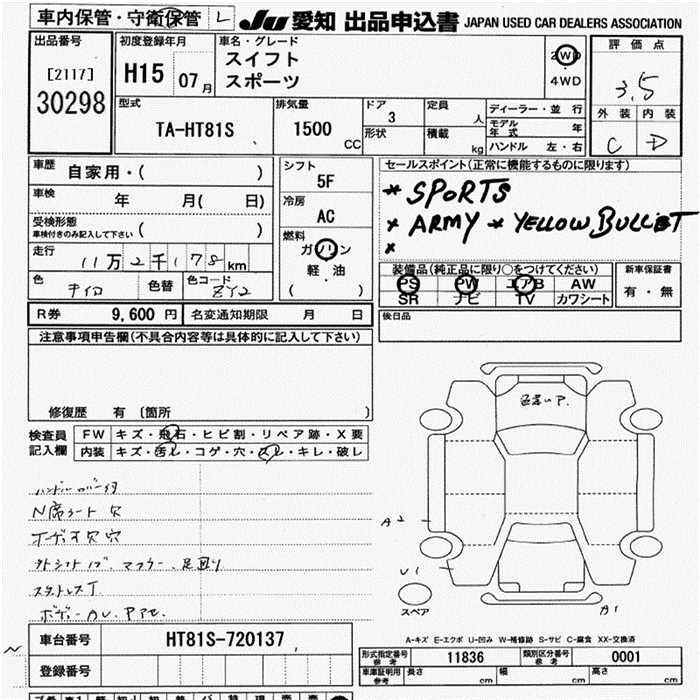 車内保管・守衛保管 L
JU 愛知 出品申込書 JAPAN USED CAR DEALERS ASSOCIATION
出品番号
[2117]
30298
初度登録年月
H15 07月
車名・グレード
スイフト
スポーツ
2WD
4WD
評価点
3.5
外装 内装
C D
型式
TA-HT81S
排気量
1500 CC
ドア
3
形状
定員 人
積載 kg
ディーラー・並行
モデル年式 年
ハンドル 左・右
車歴 自家用・( )
車検 年 月( 日)
受検形態
車検付きのみ記入して下さい ( )
走行 11万2千178km
色 キイロ 色替 色コード ZY2
シフト
5F
冷房
AC
燃料
ガソリン
軽油
( )
セールスポイント(正常に機能するものに限ります)
* SPORTS
* ARMY * YELLOW BULLET
*
装備品(純正品に限り○をつけてください)
PS PW エアB AW
SR ナビ TV カワシート
新車保証書
有・無
R券 9,600円 名変通知期限 月 日
後日品
注意事項申告欄(不具合内容等は具体的に記入して下さい)
修復歴 有 〔箇所 〕
検査員記入欄
FW キズ・飛石・ヒビ割・リペア跡・X要
内装 キズ・汚レ・コゲ・穴・スレ・キレ・破レ
N席シート 穴
A2
U1
A1
スペア
A-キズ E-エクボ U-凹み W-補修跡 S-サビ C-腐食 XX-交換済
車台番号 HT81S-720137
登録番号
形式指定番号 参考 11836 類別区分番号 参考 0001
車庫証明用 参考 長さ cm 幅 cm 高さ cm